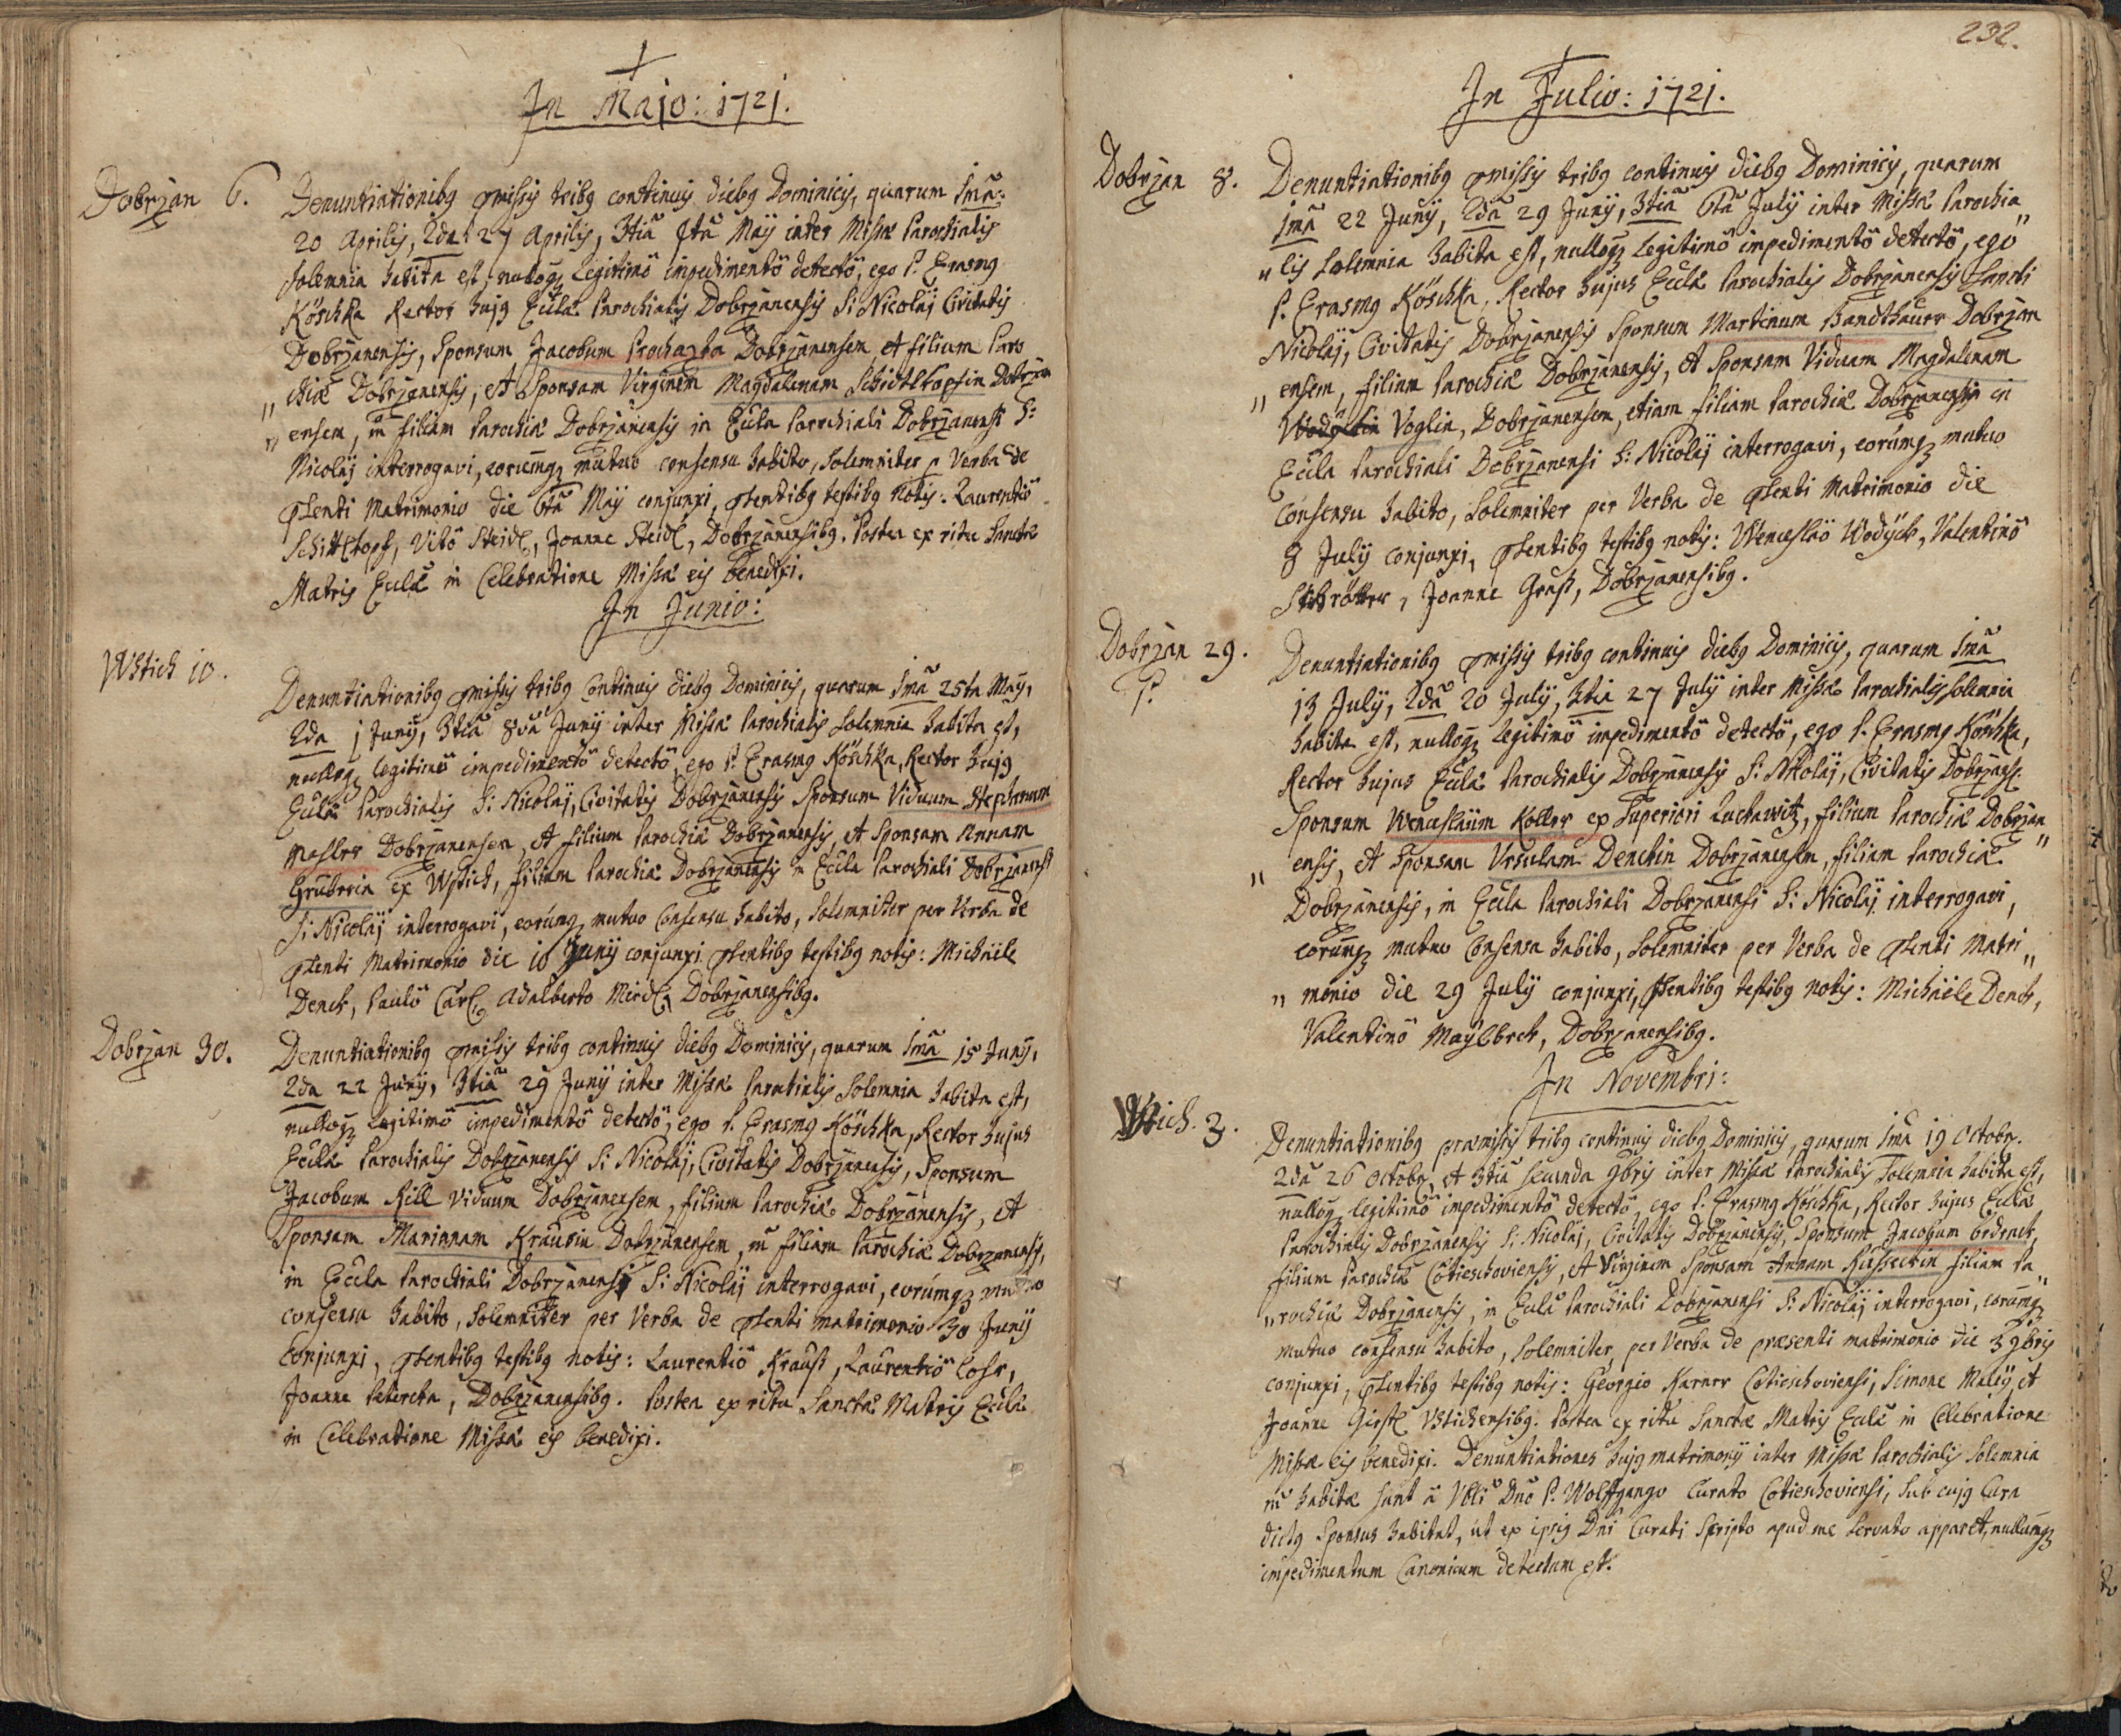 In Majo: 1721.
Dobrzan 6. Denuntiationibq pmissis tribq continuis diebq Dominicis, quarum 1mã
20 Aprilis, 2da 27 Aprilis, 3tiã 4tã Maÿ inter Missæ Parochialis
solemnia habita est, nulloq3 legitimõ impedimentõ detectõ, ego P. Erasmq
Köschka Rector hujq Eccłæ Parochialis Dobrzanensis S: Nicolaj Civitatis
Dobrzanensis, Sponsum Jacobum Prochazka Dobrzanensem et filium Paro
" chiæ Dobrzanensis, et Sponsam Virginem Magdalenam Schidtlkopfin Dobrzan
" ensem, ũ filiam Parochiæ Dobrzanensis in Eccła Parochiali Dobrzanensi S:
Nicolaj interrogavi, eorumq3 mutuo consensu habito, solemniter p Verba de
pñenti Matrimonio die 6tã Maÿ conjunxi, pñentibq testibq notis: Laurentiõ
Schittlkopf, Vitõ Steidl, Joanne Steidl, Dobrzanensibq. Postea ex ritu Sanctæ
Matris Eccłæ in Celebratione Missæ eis benedixi.
In Junio:
Wstich 10. Denuntiationibq pmissis tribq continuis diebq Dominicis, quarum 1mã 25ta Maÿ,
2da 1 Junÿ, 3tiã 8vã Junÿ inter Missæ Parochialis Solemnia habita est,
nulloq3 legitimõ impedimentõ detectõ, ego P. Erasmq Köschka, Rector hujq
Eccłæ Parochialis S: Nicolaj, Civitatis Dobrzanensis Sponsum Viduum Stephanum
Masler Dobrzanensem, et filium Parochiæ Dobrzanensis, et Sponsam Annam
Gruberin ex Wstich, filiam Parochiæ Dobrzanensis in Eccła Parochiali Dobrzanensi
S: Nicolaj interrogavi, eorumq3 mutuo Consensu habito, solemniter per Verba de
pñenti Matrimonio die 10 Junÿ conjunxi pñentibq testibq notis: Michaele
Denck, Paulõ Carl, Adalberto Miedl, Dobrzanensibq.
Dobrzan 30. Denuntiationibq pmissis tribq continuis diebq Dominicis, quarum 1mã 15 Junÿ,
2da 22 Junÿ, 3tiã 29 Junÿ inter Missæ Parochialis Solemnia habita est,
nulloq3 legitimõ impedimentõ detectõ, ego P. Erasmq Köschka, Rector hujus
Eccłæ Parochialis Dobrzanensis S: Nicolaj, Civitatis Dobrzanensis, Sponsum
Jacobum Rill Viduum Dobrzanensem, filium Parochiæ Dobrzanensis, et
Sponsam Mariannam Krausin Dobrzanensem, ũ filiam Parochiæ Dobrzanensis,
in Eccła Parochiali Dobrzanensi S: Nicolaj interrogavi, eorumq3 mutuo
consensu habito, solemniter per Verba de pñenti matrimonio 30 Junÿ
conjunxi, pñentibq testibq notis: Laurentiõ Krauß, Laurentiõ Lohr,
Joanne Petercka, Dobrzanensibq. Postea ex ritu Sanctæ Matris Eccłæ
in Celebratione Missæ eis benedixi.
232.
In Julio: 1721.
Dobrzan 8. Denuntiationibq pmissis tribq continuis diebq Dominicis, quarum
1mã 22 Junÿ, 2dã 29 Junÿ, 3tiã 6tã Julÿ inter Missæ Parochia"
" lis Solemnia habita est, nulloq3 legitimõ impedimentõ detectõ, ego
P. Erasmq Köschka, Rector hujus Eccłæ Parochialis Dobrzanensis Sancti
Nicolaj, Civitatis Dobrzanensis Sponsum Martinum Handthauer Dobrzan
" ensem, filium Parochiæ Dobrzanensis, et Sponsam Viduam Magdalenam
Voglin, Dobrzanensem, etiam filiam Parochiæ Dobrzanensis in
Eccła Parochiali Dobrzanensi S: Nicolaj interrogavi, eorumq3 mutuo
consensu habito, solemniter per Verba de pñenti Matrimonio die
8 Julÿ conjunxi, pñentibq testibq notis: Wenceslaõ Wodÿck, Valentinõ
Schrötter, Joanne Gruß, Dobrzanensibq.
Dobrzan 29. Denuntiationibq pmissis tribq continuis diebq Dominicis, quarum 1mã
P. 13 Julÿ, 2dã 20 Julÿ, 3tia 27 Julÿ inter Missæ Parochialis solemnia
habita est, nulloq3 legitimõ impedimentõ detectõ, ego P. Erasmq Köschka,
Rector hujus Eccłæ Parochialis Dobrzanensis S: Nicolaj, Civitatis Dobrzans.
Sponsum Wenceslaum Koller ex Superiori Luckawitz, filium Parochiæ Dobrzan"
" ensis, et Sponsam Ursulam Denckin Dobrzanensem, filiam Parochiæ
Dobrzanensis, in Eccła Parochiali Dobrzanensi S: Nicolaj interrogavi,
eorumq3 mutuo Consensu habito, solemniter per Verba de pñenti Matri"
" monio die 29 Julÿ conjunxi, pñentibq testibq notis: Michaele Denck,
Valentinõ Maÿlbeck, Dobrzanensibq.
In Novembri:
Wstich. 3. Denuntiationibq præmissis tribq continuis diebq Dominicis, quarum 1mã 19 Octobr.
2dã 26 Octobr, et 3tiã secunda 9bris inter Missæ Parochialis Solemnia habita est,
nulloq3 legitimõ impedimentõ detectõ, ego P. Erasmq Köschka, Rector hujus Eccłæ
Parochialis Dobrzanensis S: Nicolaj, Civitatis Dobrzanensis, Sponsum Jacobum Bedrnek,
filium Parochiæ Cotieschoviensis, et Virginem Sponsam Annam filiam Pa"
" rochiæ Dobrzanensis, in Eccła Parochiali Dobrzanensi S: Nicolaj interrogavi, eorumq3
mutuo consensu habito, solemniter, per Verba de præsenti matrimonio die 3 9bris
conjunxi, pñentibq testibq notis: Georgio Karner Cotieschoviensi, Simone Maleÿ, et
Joanne Girstl Vstichensibq. Postea ex ritu Sanctæ Matris Eccłæ in Celebratione
Missæ eis benedixi. Denuntiationes hujq matrimonÿ inter Missæ Parochialis Solemnia
ũ habitæ sunt ã Vbli Dno P. Wolffgango Curato Cotieschoviensi, sub cujq Cura
dictq Sponsus habitat, ut ex ipsiq Dni Curati Scripto apud me servato apparet, nullumq3
impedimentum Canonicum detectum est.